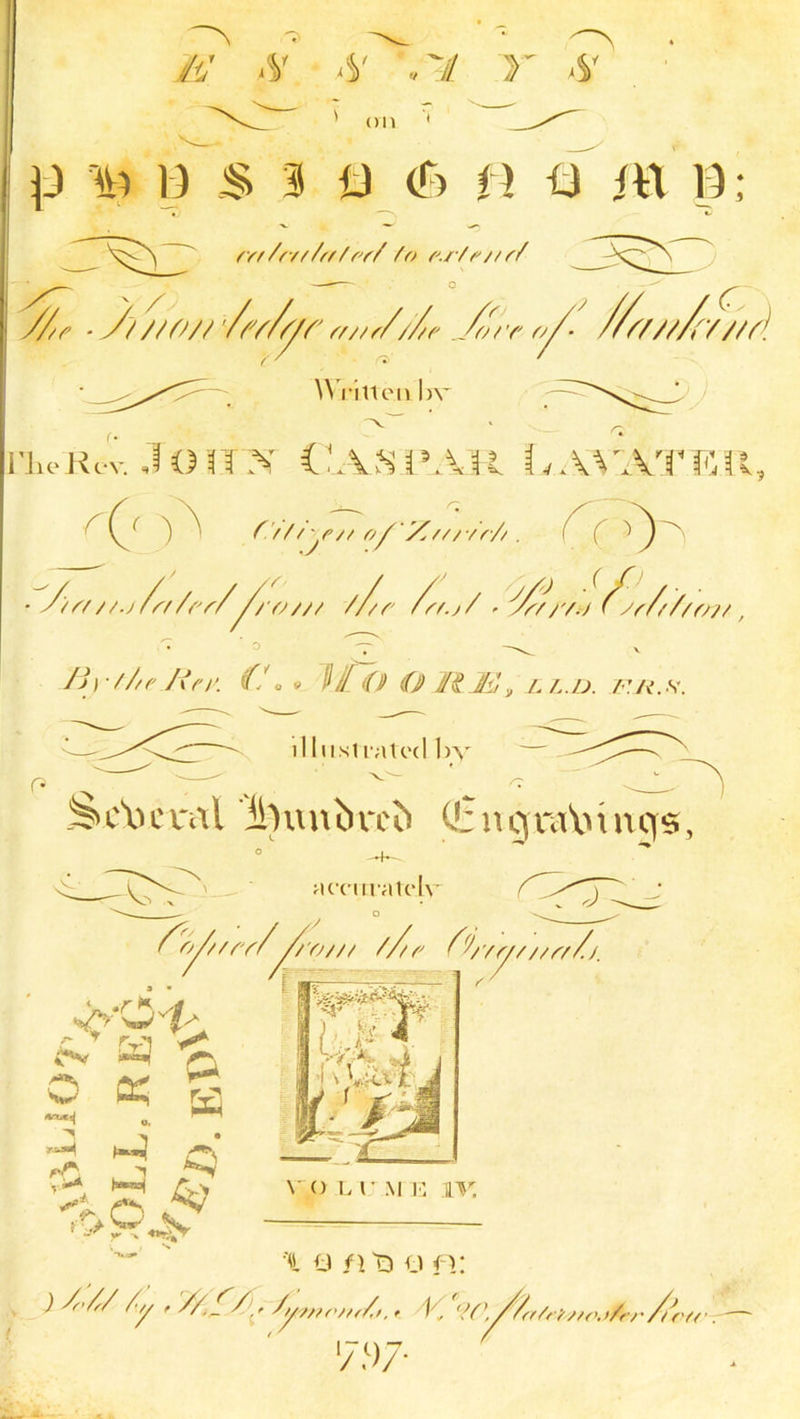 ESSAYS
on
PHYSIOGNOMY;
calculated to extend
The Knowledge and the Love of Mankind.
Written by
The Rev. JOHN CASPAR LAVATER,
Citizen of Zurich.
Translated from the last Paris Edition,
By the Rev. C. MOORE, LL.D. F.R.S.
illustrated by
Several Hundred Engravings,
accurately
Copied from the Originals.
BIBLIOTH.
COLL. REG.
MED. EDIN.
VOLUME IV.
LONDON:
Sold by H.D. Symonds, No. 20, Paternoster Row.
1797.